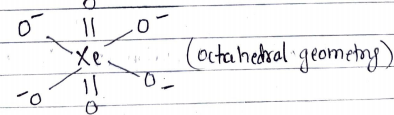 O
O⁻ || O⁻
Xe (octahedral geometry)
⁻O || O⁻
O